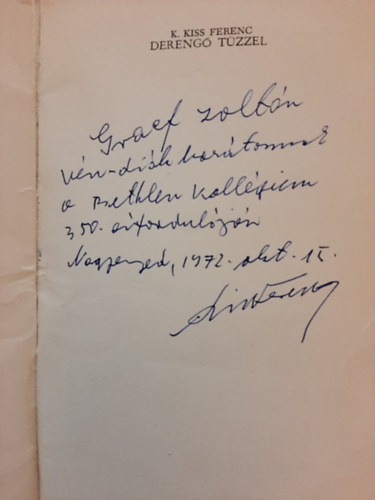 K. KISS FERENC
DERENGŐ TŰZZEL
Graef Zoltán
vén-diák barátomnak
a Bethlen Kollégium
350. évfordulóján
Nagyenyed, 1972. okt. 15.
Kiss Ferenc